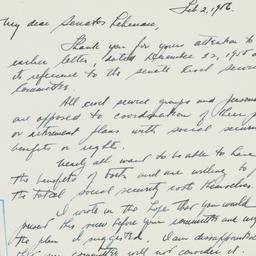 Feb 2, 1956.
My dear Senator Lehman,
Thank you for your attention to
earlier letter, dated December 22, 1955 a
its reference to the Senate Civil Serv
Committee.
All civil service groups and person
are opposed to coordination of their p
or retirement plans with social secur
benefits or rights.
Nearly all want to be able to have
the benefits of both and are willing to
the total social security costs themselves
I wrote in the hope that you would
present this view before your committee and
the plan I suggested. I am disappointed
that your committee will not consider it.